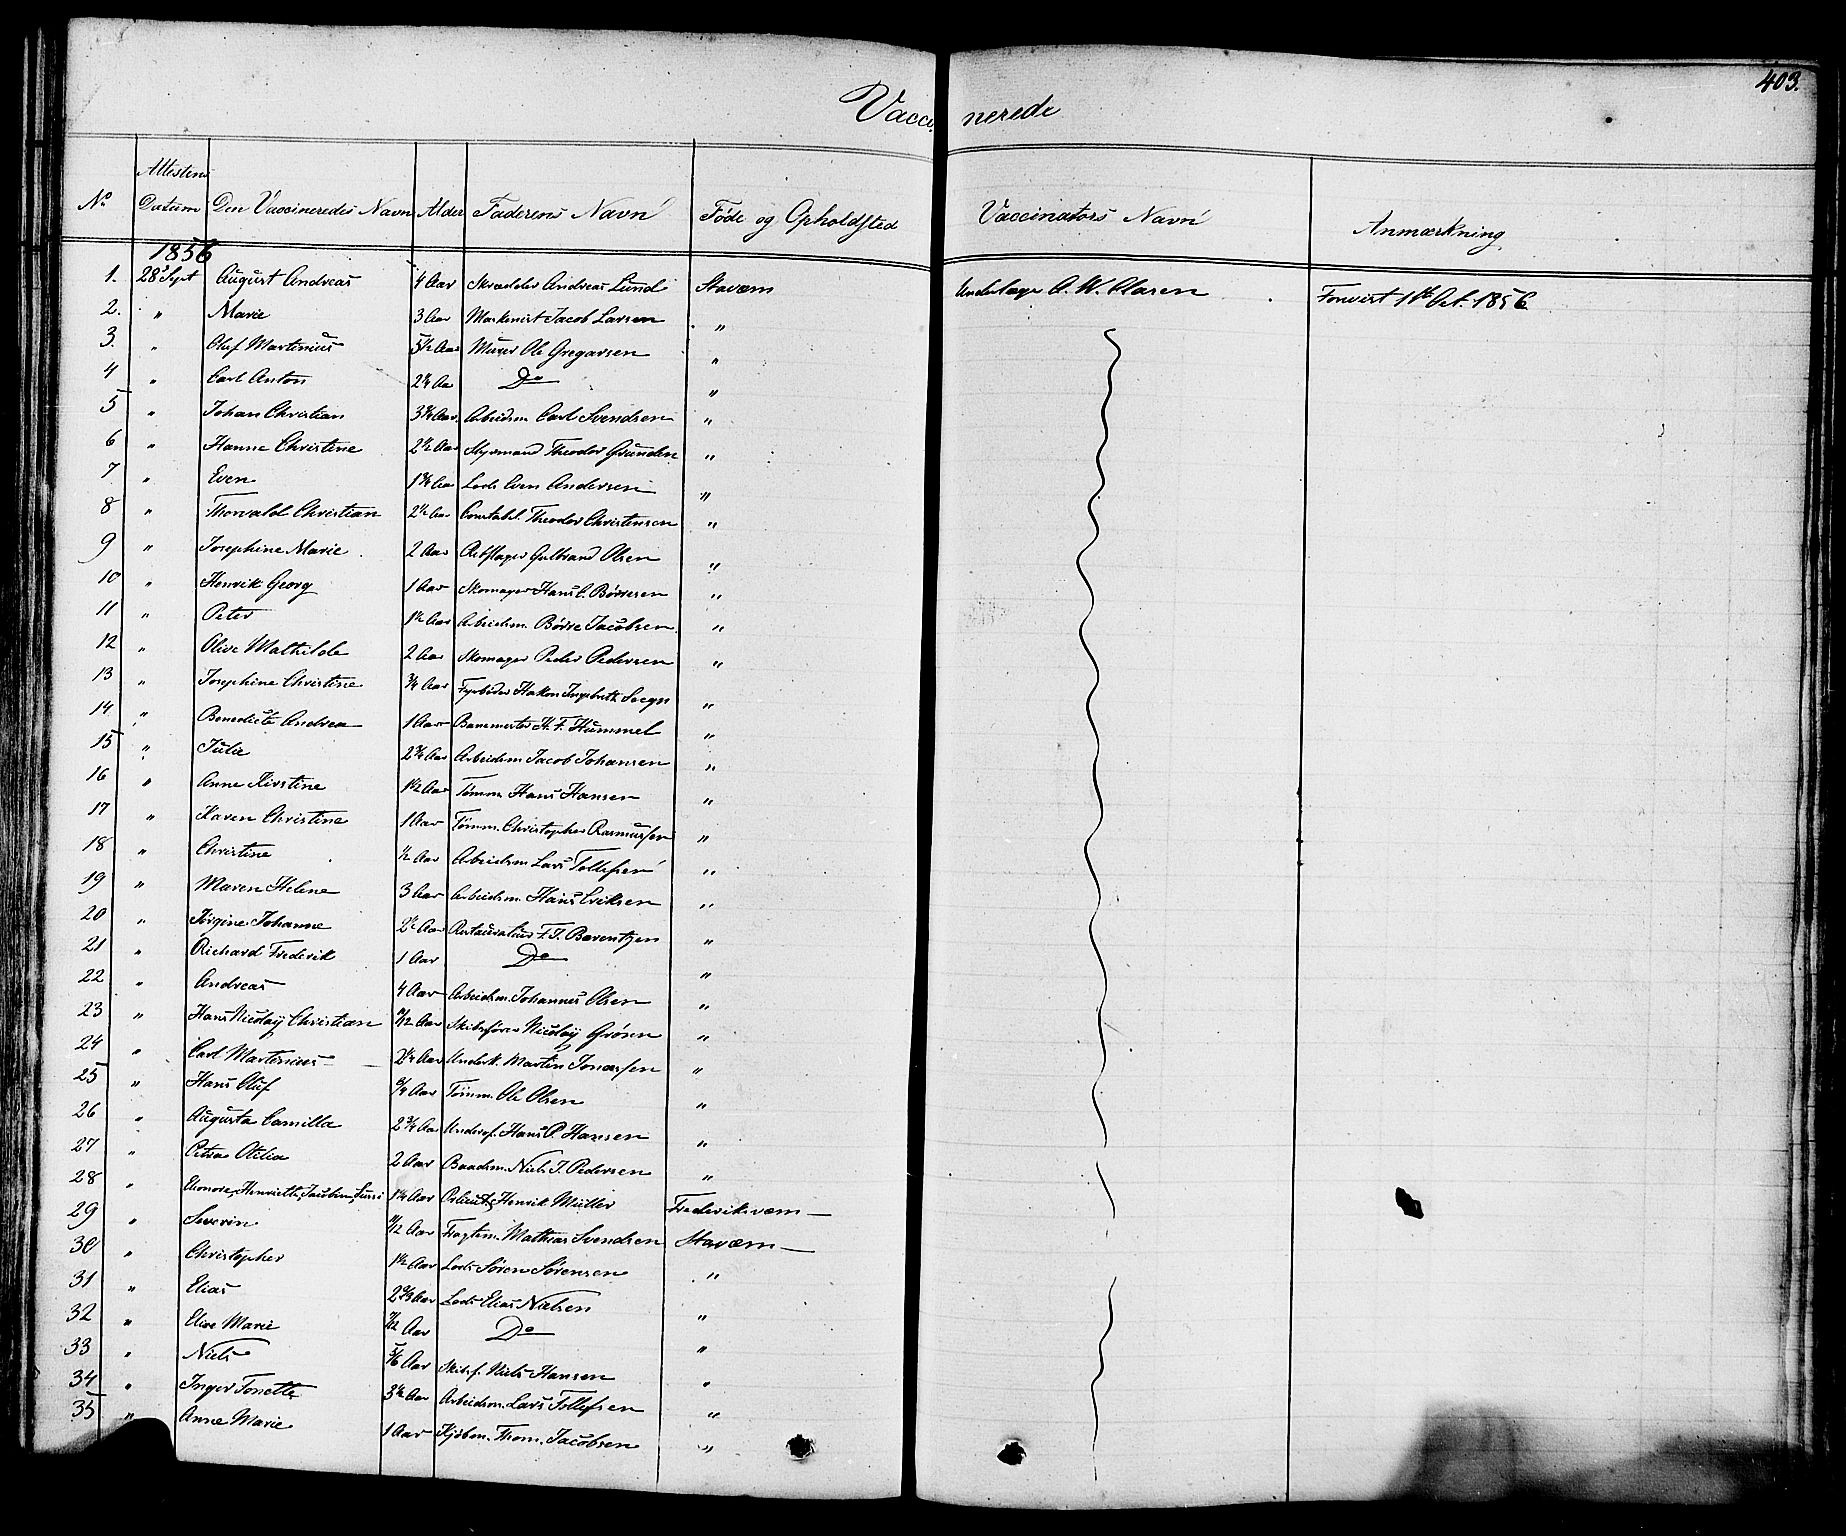 403.
Vaccinerede
No. Attestens Datum Den Vaccineredes Navn Alder Faderens Navn Føde og Opholdsted Vaccinators Navn Anmærkning
1856
1. 28 Sept August Andreas 4 Aar Skrædder Andreas Lund Staværn Underlæge A. W. Clasen Forvist 1ste Oct. 1856
2. " Marie 3 Aar Jacob Larsen "
3. " Oluf Martinius 5½ Aar Murer Ole Gregarsen "
4 " Carl Anton 2¼ Aa Do "
5 " Johan Christian 3¾ Aar Arbeidsm. Carl Svendsen "
6 " Hanne Christine 2½ Aar Styrmand Theodor Grunden "
7 " Even 1¾ Aar Lods Even Andersen "
8 " Thorvald Christian 2½ Aar Constabl. Theodor Christensen "
9 " Josephine Marie 2 Aar Rebslager Gulbrand Olsen "
10 " Henrik Georg 1 Aar Skomager Hans C. Børresen "
11 " Peter 1½ Aar Arbeidsm. Børre Jacobsen "
12 " Olive Mathilde 2 Aar Skomager Peder Pedersen "
13 " Josephine Christine ¾ Aar Fyrbøder Hakon Ingebreth "
14 " Benedicte Andrea 1 Aar H. F. Hummel "
15 " Julie 2¾ Aar Arbeidsm Jacob Johansen "
16 " Anne Kirstine 1½ Aar Tømm. Hans Hansen "
17 " Karen Christine 1 Aar Tømm. Christopher Rasmussen "
18 " Christine ½ Aar Arbeidsm Lars Tollefsen "
19 " Maren Helene 3 Aar Arbeidsm. Hans Eriksen "
20 " Jørgine Johanne 2½ Aar F. J. Barentzen "
21 " Richard Frederik 1 Aar Do "
22 " Andreas 4 Aar Arbeidsm. Johannes Olsen "
23 " Hans Nicolaÿ Christian Aar Skibsfører Nicolaÿ Grönn "
24 " Carl Martinius 2¼ Aar Underk. Martin Jonassen "
25 " Hans Oluf Aar Tømm. Ole Olsen "
26 " Augusta Camilla 2¾ Aar Underof. Hans P. Hansen "
27 " Petra Otilia 2 Aar Baadsm. Niels J. Pedersen "
28 " Eleonore, Henriette, Jacobine, 1¼ Aar Henrik Müller Frederiksværn
29 " Severin Aar Fragtem. Mathias Svendsen Staværn
30 " Christopher 1½ Aar Lods Sören Sörensen "
31 " Elias 2 Aar Lods Elias Nielsen "
32 " Elise Marie 7/12 Aar Do "
33 " Niels 5/6 Aar Skibsf. Niels Hansen "
34 " Inger Tonette 3½ Aar Arbeidsm. Lars Tollefsen "
35 " Anne Marie 1 Aar Kjøbm. Thom. Jacobsen "